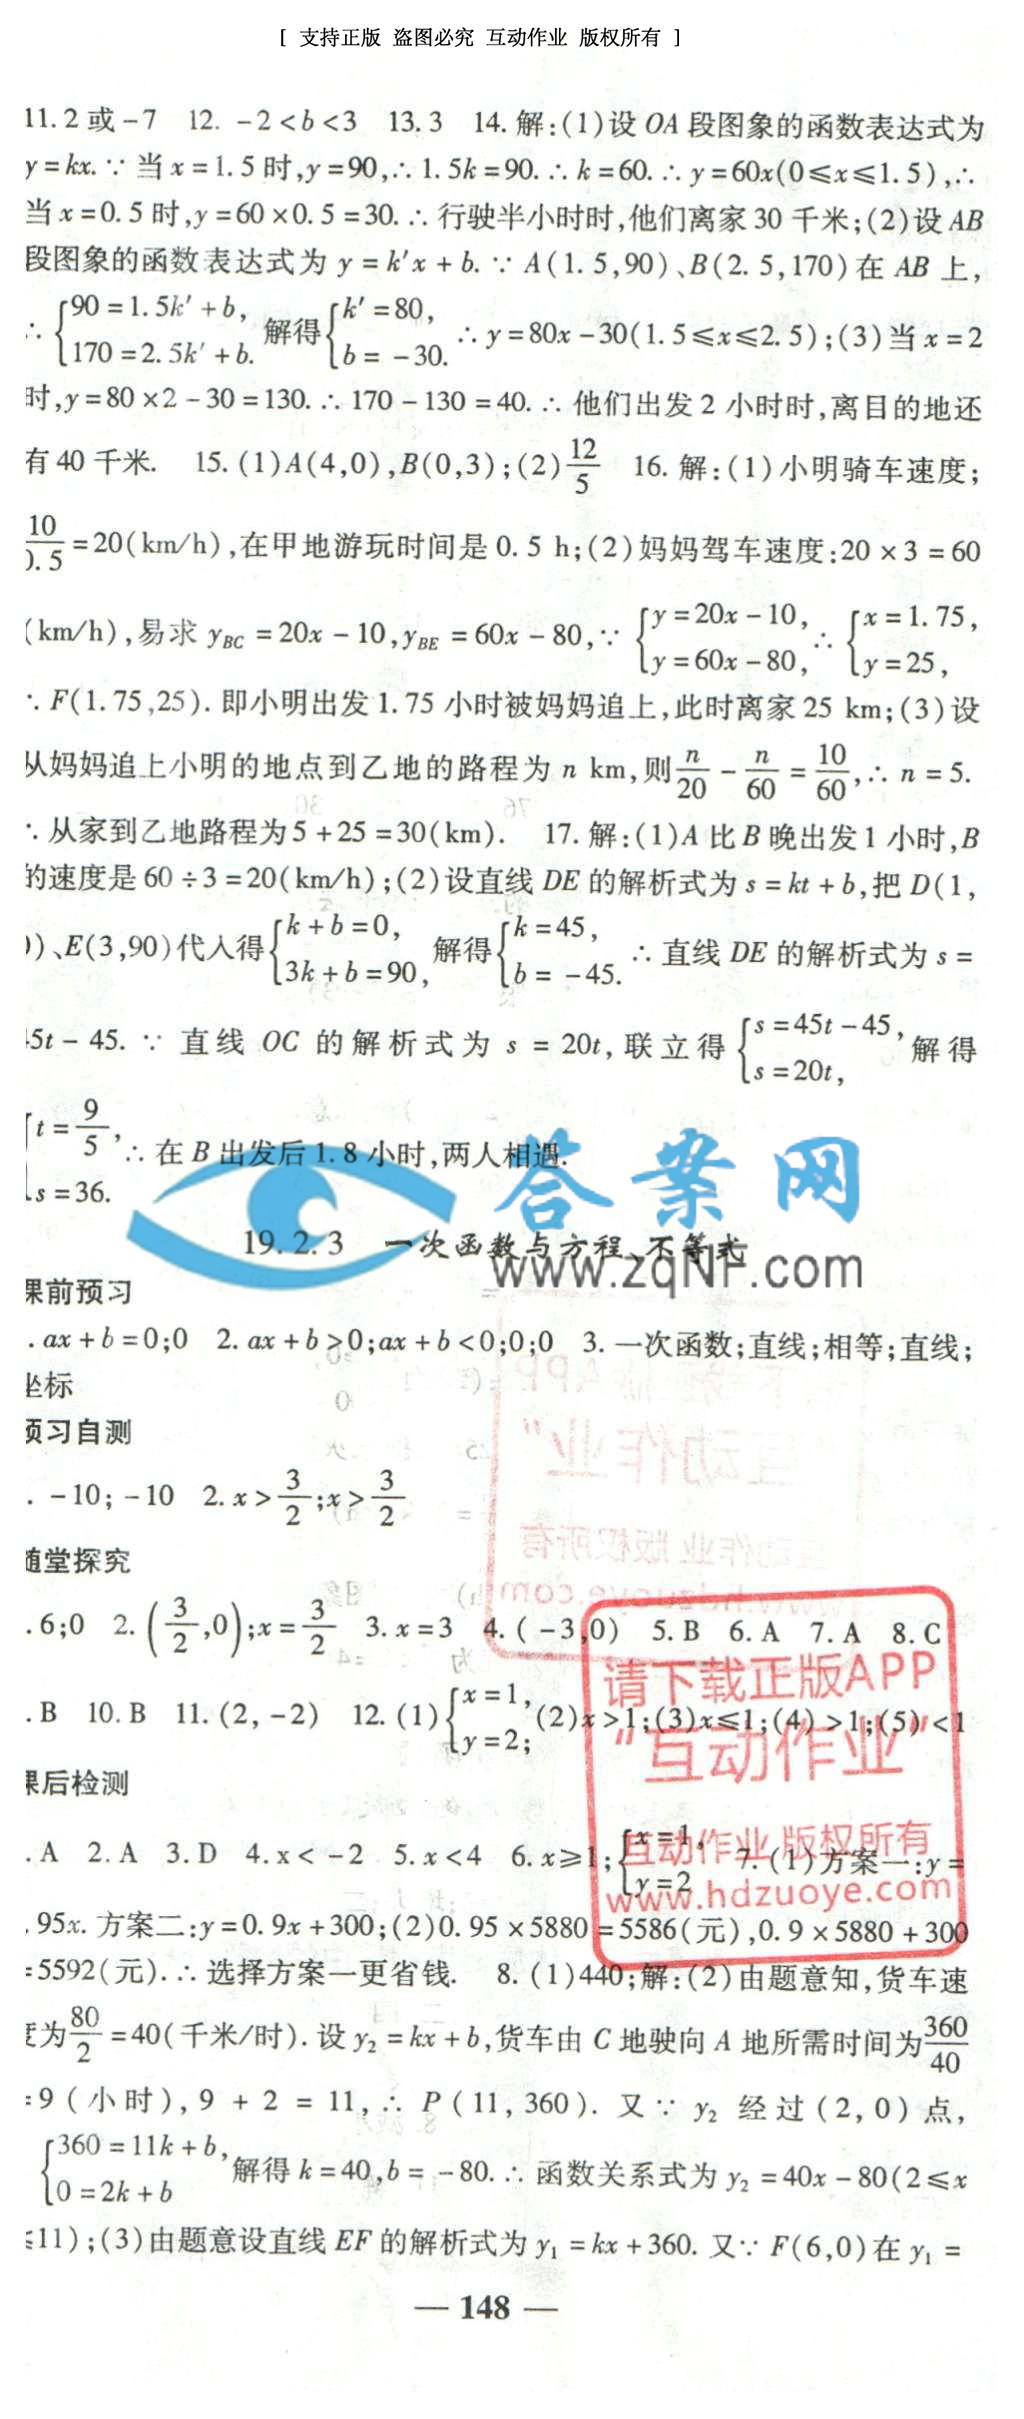 [ 支持正版 盗图必究 互动作业 版权所有 ]
11. 2 或 -7 12. -2<b<3 13. 3 14. 解:(1)设 OA 段图象的函数表达式为
y=kx. ∵ 当 x=1.5 时,y=90,∴ 1.5k=90. ∴ k=60. ∴ y=60x(0≤x≤1.5),∴
当 x=0.5 时,y=60×0.5=30. ∴ 行驶半小时时,他们离家 30 千米;(2)设 AB
段图象的函数表达式为 y=k′x+b. ∵ A(1.5,90)、B(2.5,170)在 AB 上,
∴ {90=1.5k′+b, 170=2.5k′+b. 解得 {k′=80, b=-30. ∴ y=80x-30(1.5≤x≤2.5);(3)当 x=2
时,y=80×2-30=130. ∴ 170-130=40. ∴ 他们出发 2 小时时,离目的地还
有 40 千米. 15. (1)A(4,0),B(0,3);(2)12/5 16. 解:(1)小明骑车速度;
10/0.5=20(km/h),在甲地游玩时间是 0.5 h;(2)妈妈驾车速度:20×3=60
(km/h),易求 y_BC=20x-10,y_BE=60x-80,∵ {y=20x-10, y=60x-80, ∴ {x=1.75, y=25,
∴ F(1.75,25). 即小明出发 1.75 小时被妈妈追上,此时离家 25 km;(3)设
从妈妈追上小明的地点到乙地的路程为 n km,则 n/20-n/60=10/60,∴ n=5.
∴ 从家到乙地路程为 5+25=30(km). 17. 解:(1)A 比 B 晚出发 1 小时,B
的速度是 60÷3=20(km/h);(2)设直线 DE 的解析式为 s=kt+b,把 D(1,
)、E(3,90)代入得 {k+b=0, 3k+b=90, 解得 {k=45, b=-45. ∴ 直线 DE 的解析式为 s=
5t-45. ∵ 直线 OC 的解析式为 s=20t,联立得 {s=45t-45, s=20t, 解得
{t=9/5, s=36. ∴ 在 B 出发后 1.8 小时,两人相遇.
答案网
www.zqnf.com
19.2.3 一次函数与方程、不等式
课前预习
. ax+b=0;0 2. ax+b>0;ax+b<0;0;0 3. 一次函数;直线;相等;直线;
坐标
预习自测
. -10;-10 2. x>3/2;x>3/2
随堂探究
. 6;0 2. (3/2,0);x=3/2 3. x=3 4. (-3,0) 5. B 6. A 7. A 8. C
. B 10. B 11. (2,-2) 12. (1){x=1, y=2; (2)x>1;(3)x≤1;(4)>1;(5)<1
课后检测
. A 2. A 3. D 4. x<-2 5. x<4 6. x≥1;{x=1, y=2 7. (1)方案一:y=
.95x. 方案二:y=0.9x+300;(2)0.95×5880=5586(元),0.9×5880+300
=5592(元). ∴ 选择方案一更省钱. 8. (1)440;解:(2)由题意知,货车速
度为 80/2=40(千米/时). 设 y₂=kx+b,货车由 C 地驶向 A 地所需时间为 360/40
=9(小时),9+2=11,∴ P(11,360). 又∵ y₂ 经过(2,0)点,
{360=11k+b, 0=2k+b 解得 k=40,b=-80. ∴ 函数关系式为 y₂=40x-80(2≤x
≤11);(3)由题意设直线 EF 的解析式为 y₁=kx+360. 又∵ F(6,0)在 y₁=
请下载正版APP
“互动作业”
互动作业 版权所有
www.hdzuoye.com
— 148 —